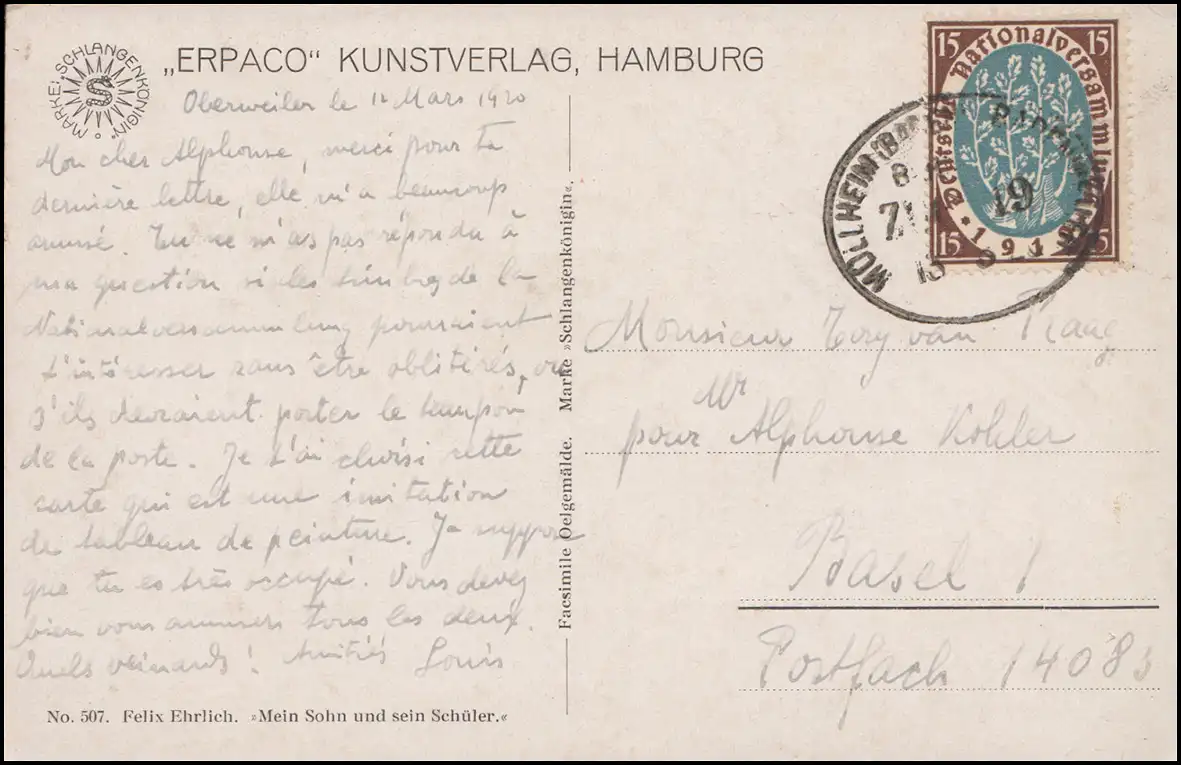 „ERPACO“ KUNSTVERLAG, HAMBURG
MARKE „SCHLANGENKÖNIGIN“
S
Oberweiler le 12 Mars 1920
Mon cher Alphonse, merci pour ta
dernière lettre, elle m'a beaucoup
amusé. Tu ne m'as pas répondu à
ma question si les timbres de la
Nationalversammlung pourraient
t'intéresser sans être oblitérés, ou
s'ils devraient porter le tampon
de la poste. Je t'ai choisi cette
carte qui est une imitation
de tableau de peinture. Je suppose
que tu es très occupé. Vous devez
bien vous amuser tous les deux.
Quels veinards! Amitiés Louis
No. 507. Felix Ehrlich. »Mein Sohn und sein Schüler.«
Facsimile Oelgemälde. Marke »Schlangenkönigin«.
15 15
Deutsche Nationalversammlung
15 1919 15
MÜLLHEIM
19
Monsieur van
Mr
pour Alphonse Kohler
Basel 1
Postfach 14083